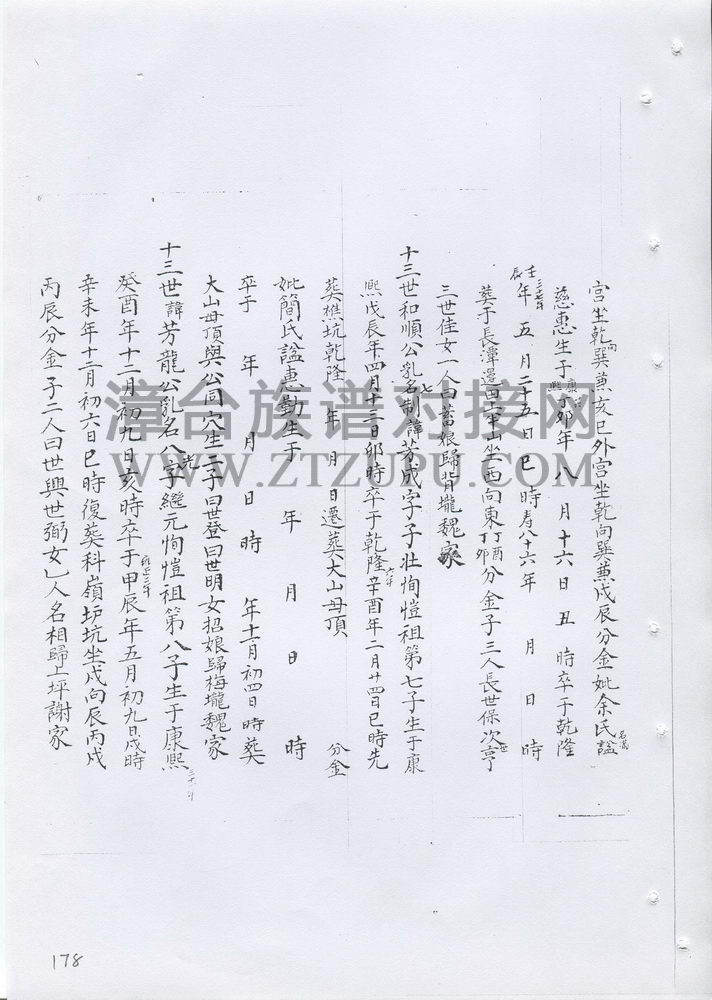 宫坐乾向巽兼亥巳外宫坐乾向巽兼戌辰分金妣余氏諡
慈惠生于康熙丁卯年八月十六日丑時卒于乾隆
三十七年壬辰年五月二十五日巳時寿八十六年 月 日 時
葬于長潭邊 山坐西向東丁酉丁卯分金子三人長世保次世亨
三世佳女一人曰蓄娘歸背壠魏家
十三世和順公乳名七制諱芳成字子壯恂愷祖第七子生于康
熙戊辰年四月十三日卯時卒于乾隆辛酉年二月廿四日巳時先
葬樵坑乾隆 年 月 日遷葬大山母頂 分金
妣簡氏諡惠勤生于 年 月 日 時
卒于 年 月 日 時 年十一月初四日時葬
大山母頂與公同穴生二子曰世登曰世明女招娘歸梅壠魏家
十三世諱芳龍公乳名八字光繼元恂愷祖第八子生于康熙
癸酉年十二月初九日亥時卒于甲辰年五月初九日戌時
辛未年十二月初六日巳時復葬科嶺炉坑坐戌向辰丙戌
丙辰分金子二人曰世興世弼女乚人名相歸上坪謝家
178
漳台族谱对接网
WWW.ZTZUPU.COM